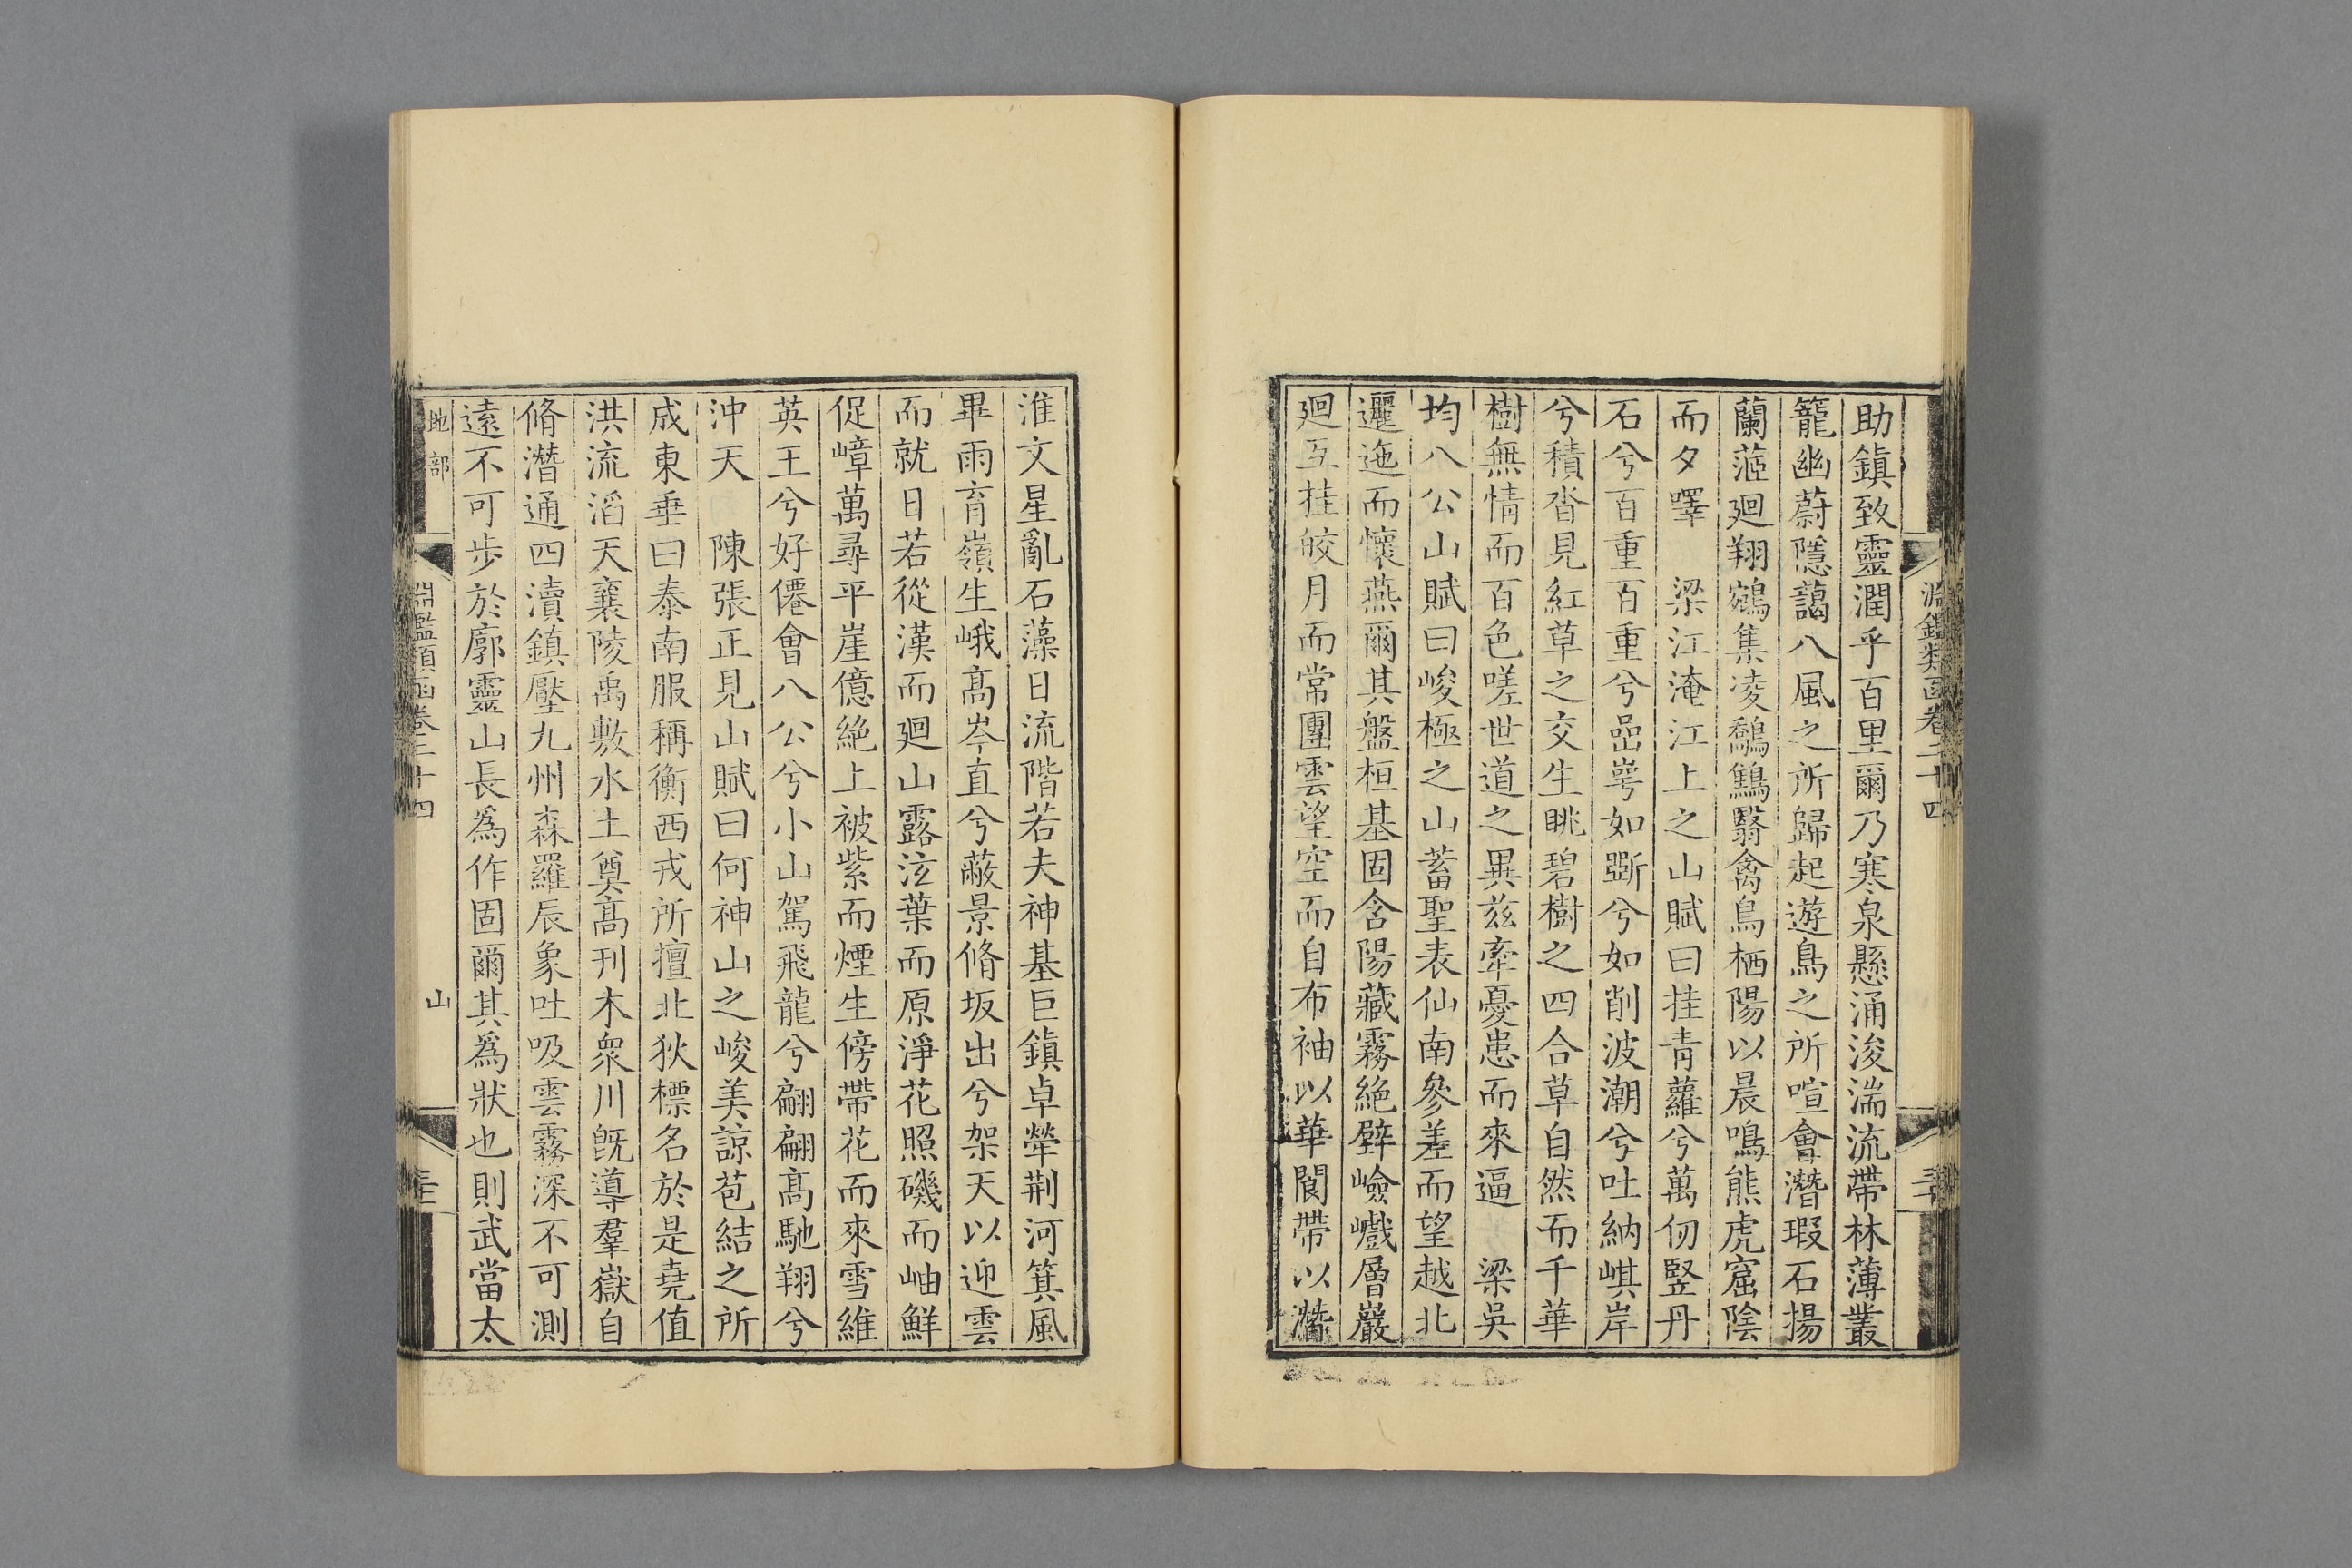 淵鑑類函卷二十四
助鎮致靈潤乎百里爾乃寒泉懸涌浚湍流帶林薄叢
籠幽蔚隱藹八風之所歸起遊鳥之所喧會潛瑕石揚
蘭蒞廻翔鵷集凌鷸鷦翳禽鳥栖陽以晨鳴熊虎窟陰
而夕嘷　梁江淹江上之山賦曰挂青蘿兮萬仞竪丹
石兮百重百重兮嵒崿如斲兮如削波潮兮吐納㟢岸
兮積沓見紅草之交生眺碧樹之四合草自然而千華
樹無情而百色嗟世道之異兹牽憂患而來逼　梁吳
均八公山賦曰峻極之山蓄聖表仙南參差而望越北
邐迤而懷燕爾其盤桓基固含陽藏霧絶壁嶮巇層巖
廻互挂皎月而常團雲望空而自布袖以華閬帶以潛
淮文星亂石藻日流階若夫神基巨鎮卓犖荆河箕風
畢雨育嶺生峨髙岑直兮蔽景脩坂出兮架天以迎雲
而就日若從漢而廻山露泫葉而原淨花照磯而岫鮮
促嶂萬尋平崖億絶上被紫而煙生傍帶花而來雪維
英王兮好僊會八公兮小山駕飛龍兮翩翩髙馳翔兮
沖天　陳張正見山賦曰何神山之峻美諒苞結之所
成東垂曰泰南服稱衡西戎所擅北狄標名於是堯值
洪流滔天襄陵禹敷水土奠髙刊木衆川旣導羣嶽自
脩潛通四瀆鎮壓九州森羅辰象吐吸雲霧深不可測
遠不可步於廓靈山長爲作固爾其爲狀也則武當太
地部
淵鑑類函卷二十四
山